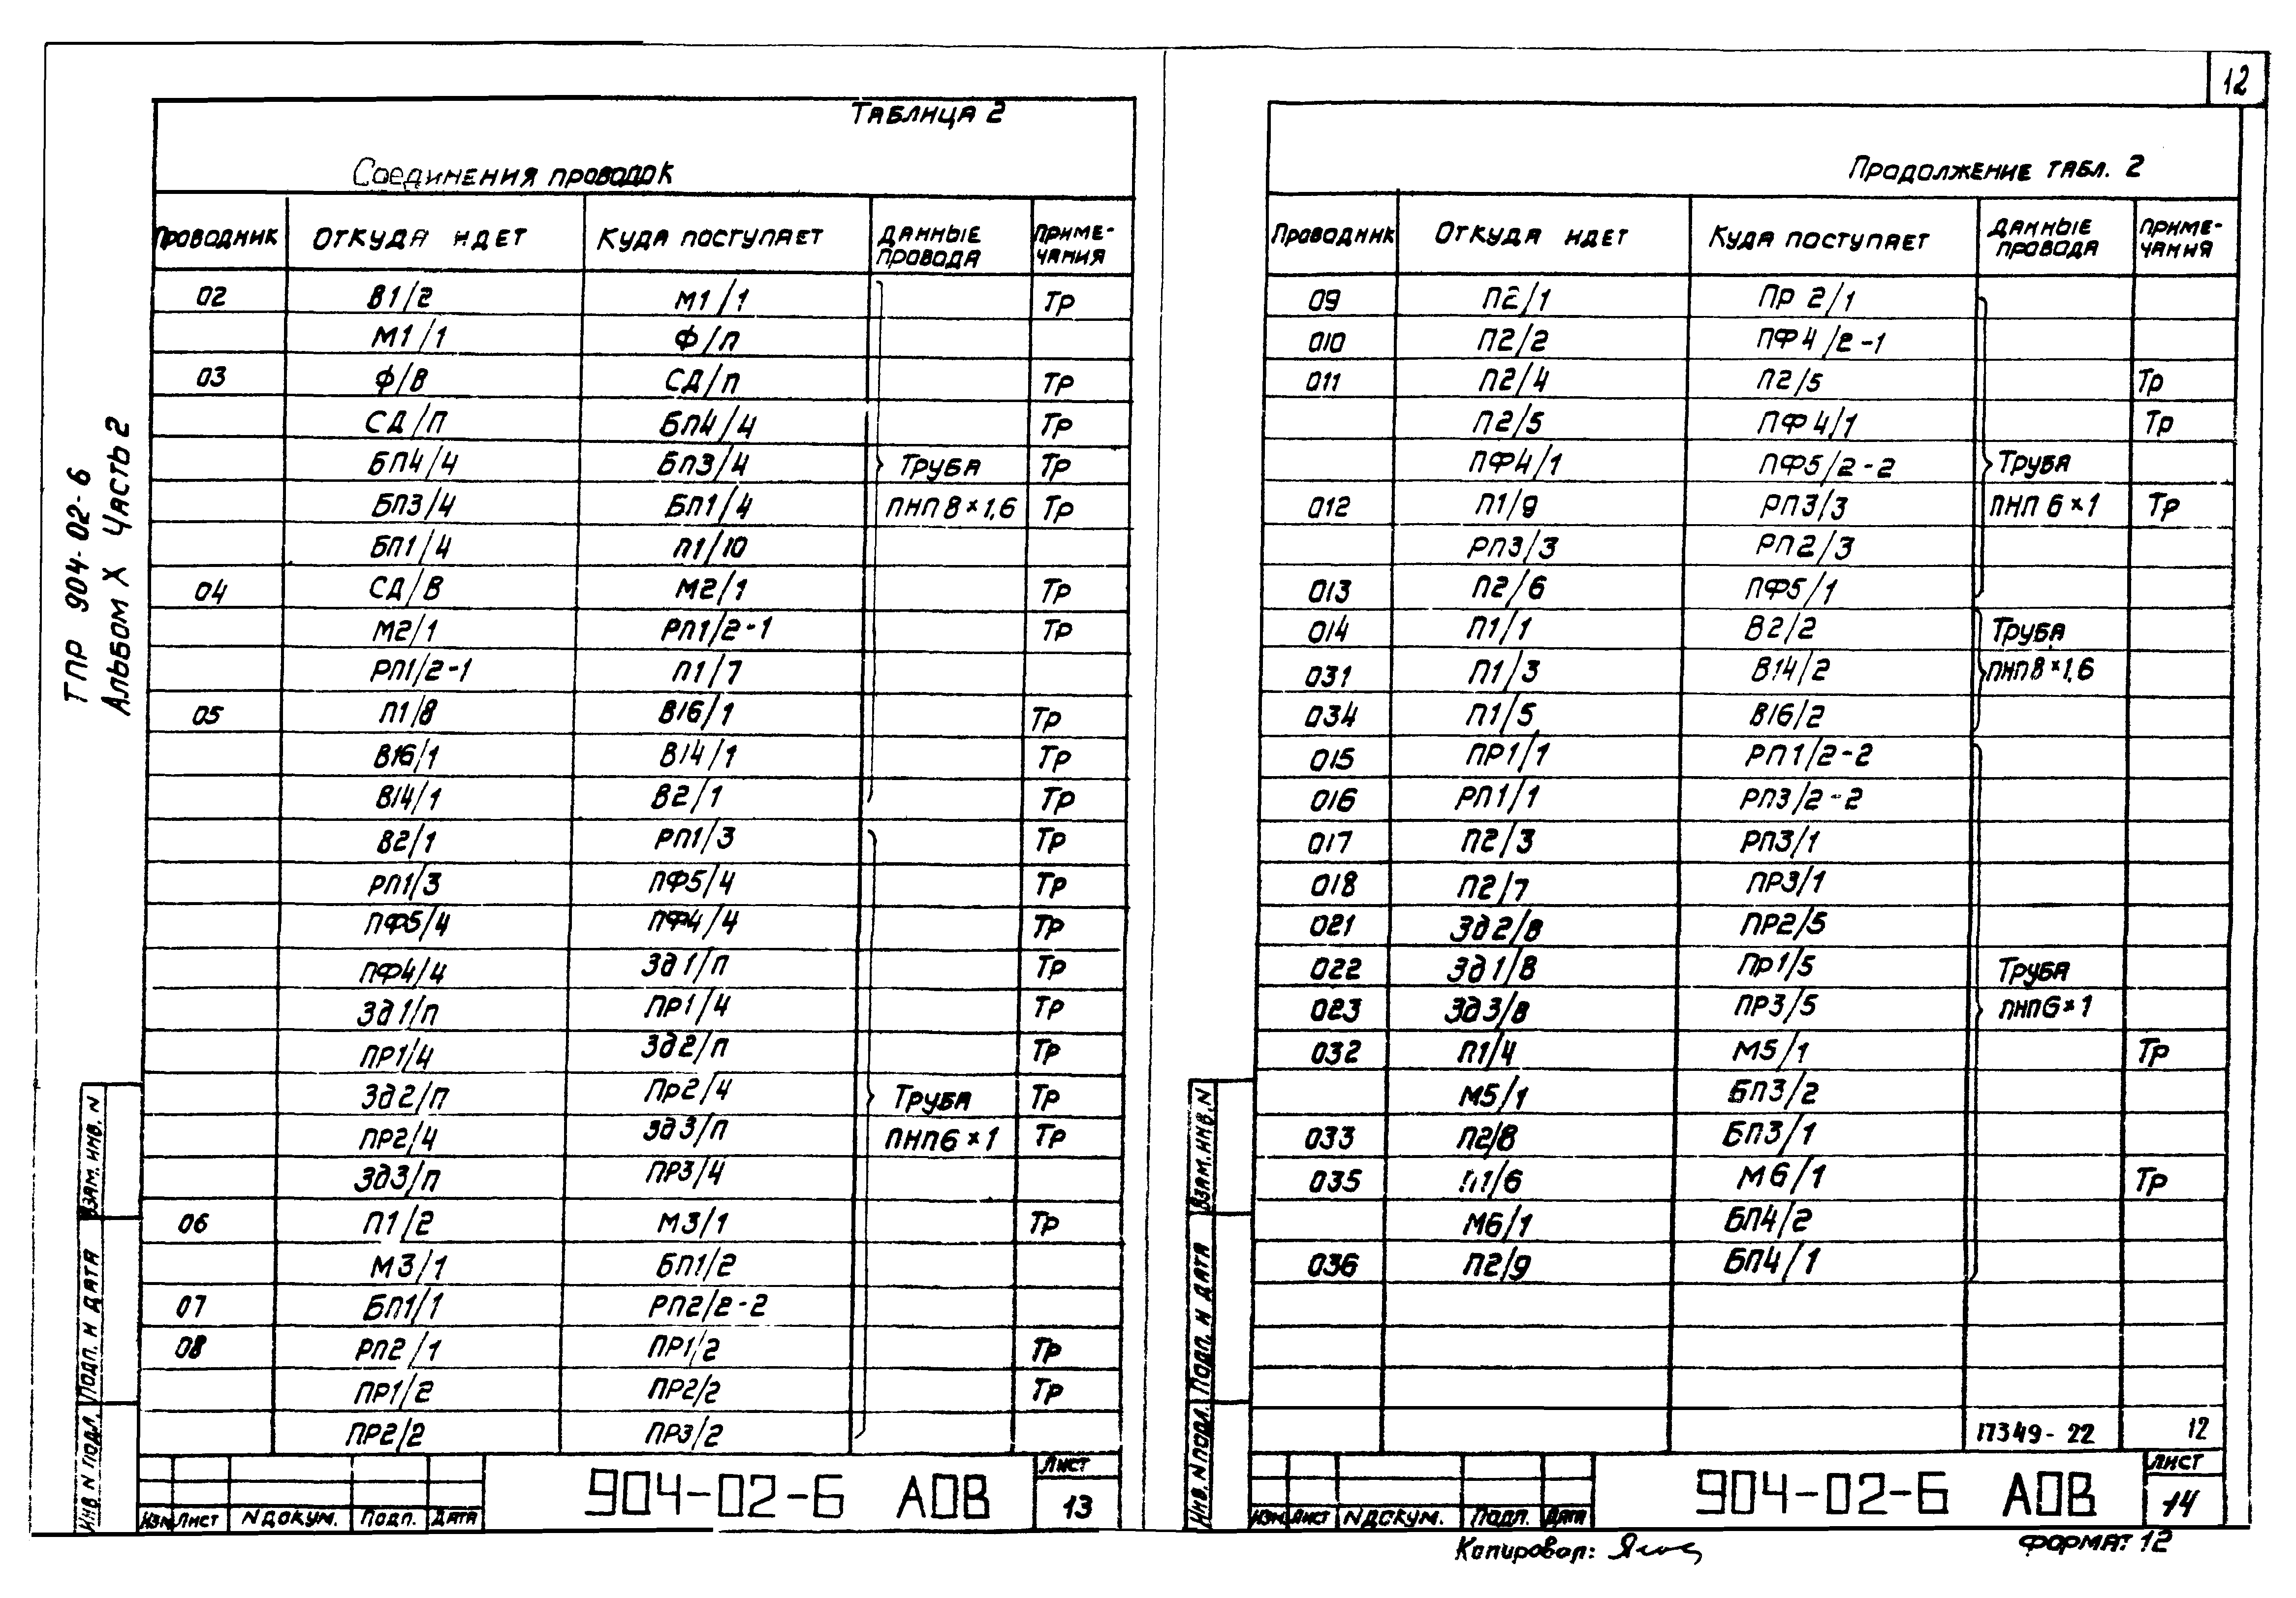 12
ТПР 904-02-6
Альбом X Часть 2
Таблица 2
Соединения проводок
Проводник Откуда идет Куда поступает Данные провода Примечания
02 В1/2 М1/1 Тр
М1/1 Ф/П
03 Ф/В СД/П Тр
СД/П БП4/4 Тр
БП4/4 БП3/4 Труба Тр
БП3/4 БП1/4 ПНП 8×1,6 Тр
БП1/4 П1/10
04 СД/В М2/1 Тр
М2/1 РП1/2-1 Тр
РП1/2-1 П1/7
05 П1/8 В16/1 Тр
В16/1 В14/1 Тр
В14/1 В2/1 Тр
В2/1 РП1/3 Тр
РП1/3 ПФ5/4 Тр
ПФ5/4 ПФ4/4 Тр
ПФ4/4 Зд1/П Тр
Зд1/П ПР1/4 Тр
ПР1/4 Зд2/П Тр
Зд2/П Пр2/4 Труба Тр
ПР2/4 Зд3/П ПНП6×1 Тр
Зд3/П ПР3/4
06 П1/2 М3/1 Тр
М3/1 БП1/2
07 БП1/1 РП2/2-2
08 РП2/1 ПР1/2 Тр
ПР1/2 ПР2/2 Тр
ПР2/2 ПР3/2
Взам. инв. N
Подп. и дата
Инв N подл.
Изм Лист N докум. Подп. Дата
904-02-6 АОВ
Лист
13
Продолжение табл. 2
Проводник Откуда идет Куда поступает Данные провода Примечания
09 П2/1 Пр 2/1
010 П2/2 ПФ4/2-1
011 П2/4 П2/5 Тр
П2/5 ПФ4/1 Тр
ПФ4/1 ПФ5/2-2 Труба
012 П1/9 РП3/3 ПНП 6×1 Тр
РП3/3 РП2/3
013 П2/6 ПФ5/1
014 П1/1 В2/2 Труба
031 П1/3 В14/2 ПНП8×1,6
034 П1/5 В16/2
015 ПР1/1 РП1/2-2
016 РП1/1 РП3/2-2
017 П2/3 РП3/1
018 П2/7 ПР3/1
021 Зд2/В ПР2/5
022 Зд1/В Пр1/5 Труба
023 Зд3/В ПР3/5 ПНП6×1
032 П1/4 М5/1 Тр
М5/1 БП3/2
033 П2/8 БП3/1
035 П1/6 М6/1 Тр
М6/1 БП4/2
036 П2/9 БП4/1
17349-22 12
Взам. инв. N
Подп. и дата
Инв. N подл.
Изм Лист N докум. Подп. Дата
904-02-6 АОВ
Лист
14
Копировал:
Формат 12